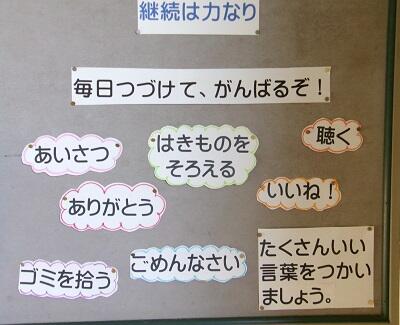 継続は力なり
毎日つづけて、がんばるぞ!
あいさつ
はきものを
そろえる
聴く
ありがとう
いいね!
ゴミを拾う
ごめんなさい
たくさんいい
言葉をつかい
ましょう。